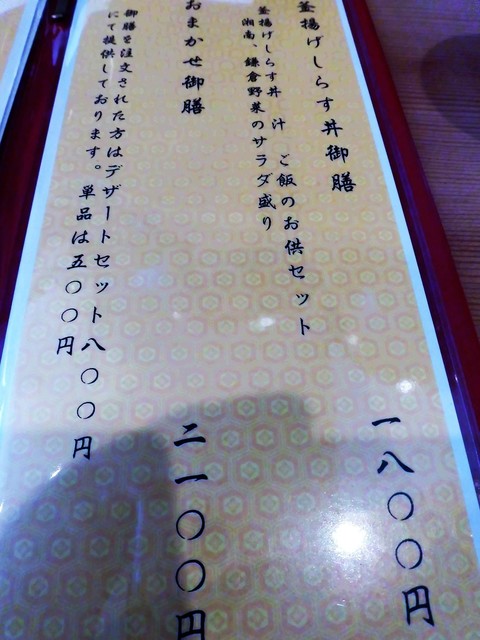 釜揚げしらす丼御膳 一八〇〇円
釜揚げしらす丼 汁 ご飯のお供セット
湘南、鎌倉野菜のサラダ盛り
おまかせ御膳 二一〇〇円
御膳を注文された方はデザートセット八〇〇円
にて提供しております。単品は五〇〇円